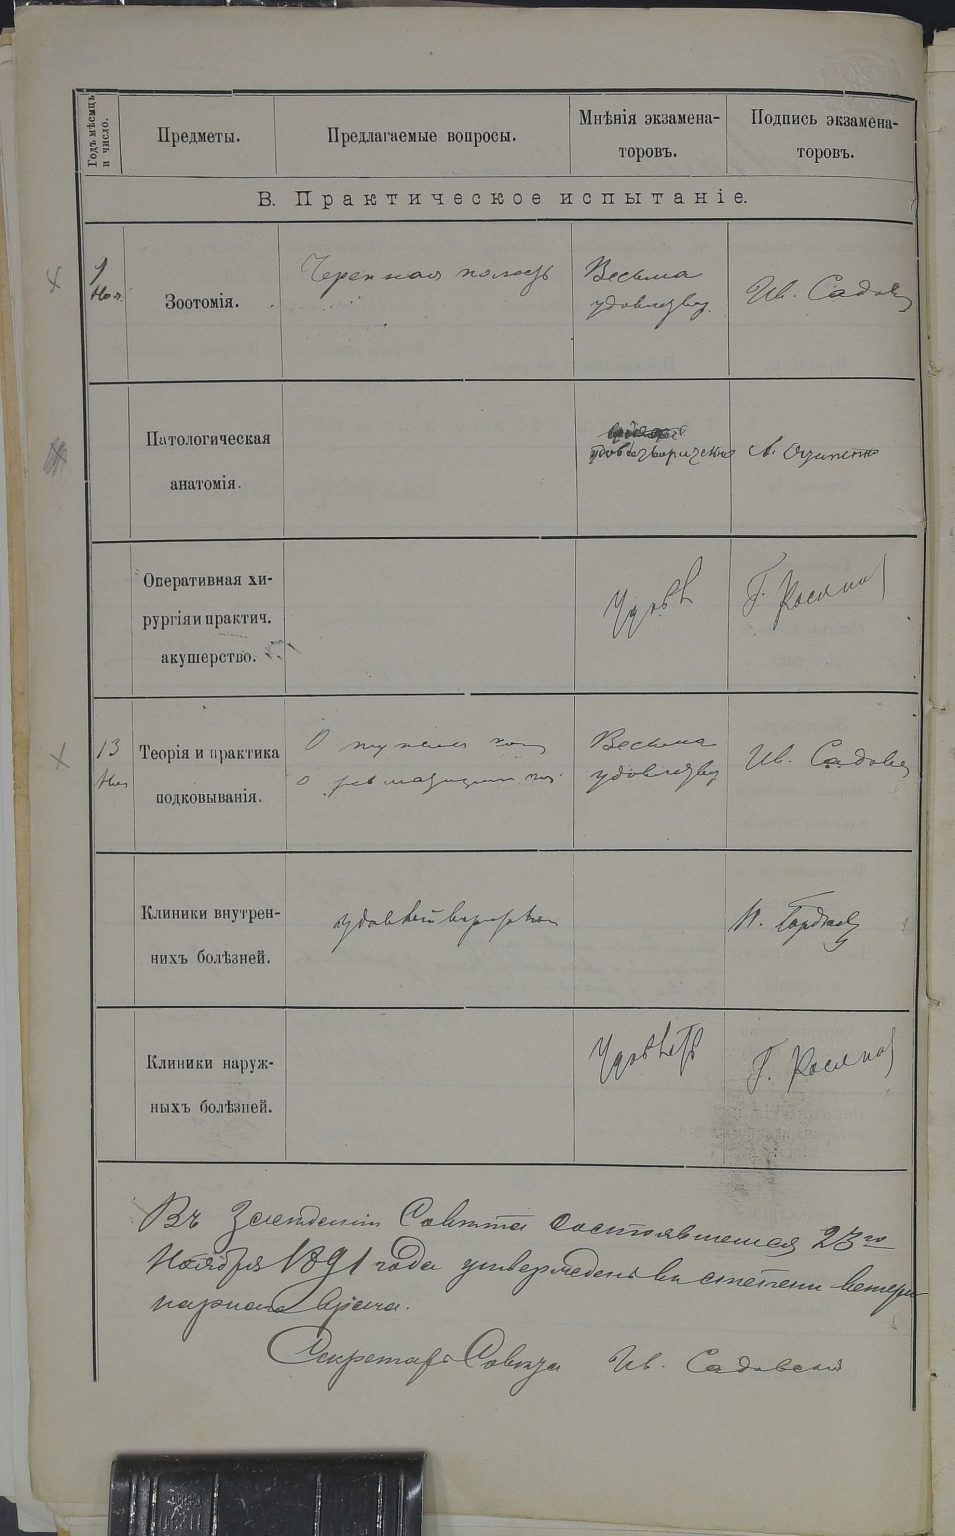 Годъ мѣсяцъ
и число.
Предметы.
Предлагаемые вопросы.
Мнѣнія экзамена-
торовъ.
Подпись экзамена-
торовъ.
В. Практическое испытаніе.
1
Ноя.
Зоотомія.
Черепная полость
Весьма
удовлетвор.
Ив. Садовс
Патологическая
анатомія.
удовлетворительно
Оперативная хи-
рургія и практич.
акушерство.
Удовл
Г.
13
Ноя
Теорія и практика
подковыванія.
О
о
Весьма
удовлетвор
Ив. Садовс
Клиники внутрен-
нихъ болѣзней.
удовлетворительно
Клиники наруж-
ныхъ болѣзней.
Удовлетв
Г.
Въ Засѣданіи Совѣта состоявшемся 23го
Ноября 1891 года утвержденъ въ степени ветери-
нарнаго врача.
Секретарь Совѣта Ив. Садовскій